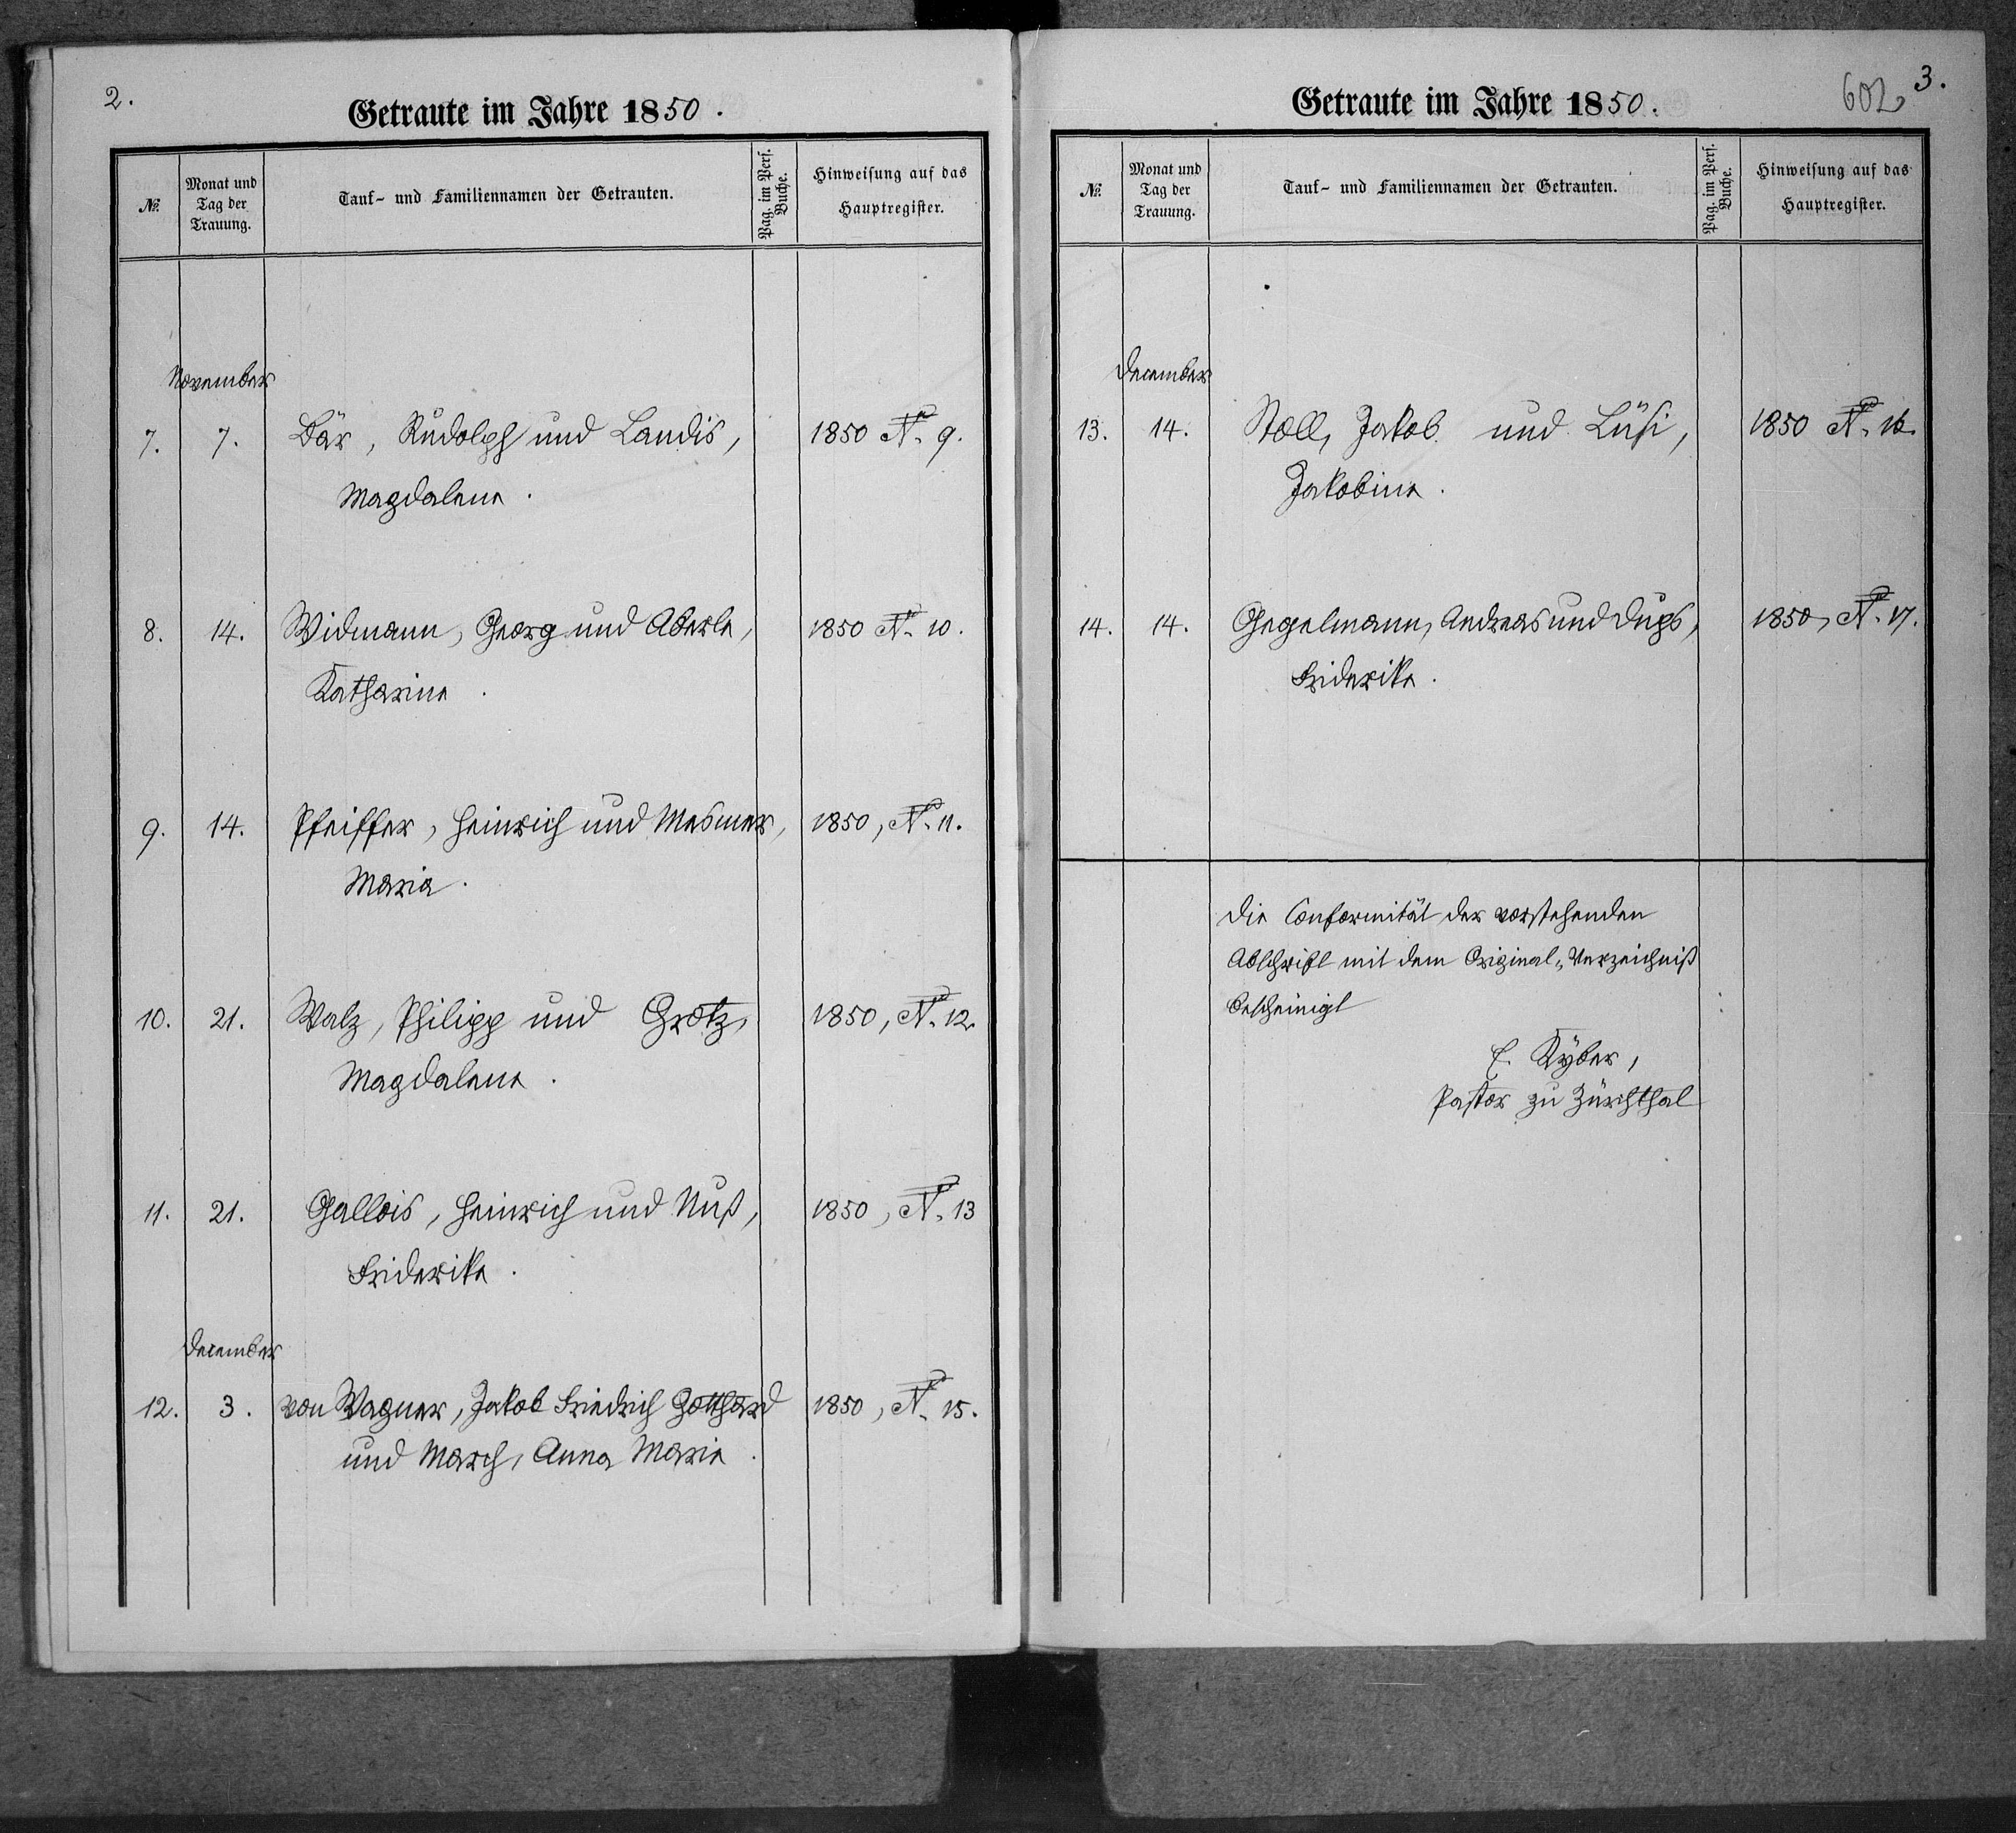 2.
Getraute im Jahre 1850.
№.
Monat und Tag der Trauung.
Tauf- und Familiennamen der Getrauten.
Pag. im Pers. Buche.
Hinweisung auf das Hauptregister.
November
7. 7. Bär, Rudolph und Landis, 1850 № 9.
Magdalena.
8. 14. Widmann, Georg und Aberle, 1850 № 10.
Katharina.
9. 14. Pfeiffer, Heinrich und Mesmer, 1850, № 11.
Maria.
10. 21. Walz, Philipp und Grotz, 1850, № 12.
Magdalena.
11. 21. Gallois, Heinrich und Nuß, 1850, № 13
Friderika.
December
12. 3. von Wagner, Jakob Friedrich Gotthard 1850, № 15.
und March, Anna Maria.
602 3.
Getraute im Jahre 1850.
№.
Monat und Tag der Trauung.
Tauf- und Familiennamen der Getrauten.
Pag. im Pers. Buche.
Hinweisung auf das Hauptregister.
December
13. 14. Stoll, Jakob und Lüsi, 1850 № 16.
Jakobina.
14. 14. Gegelmann, Andreas und Dups, 1850, № 17.
Friderika.
Die Conformität der vorstehenden
Abschrift mit dem Original-Verzeichniß
bescheinigt
E. Kyber,
Pastor zu Zürchthal